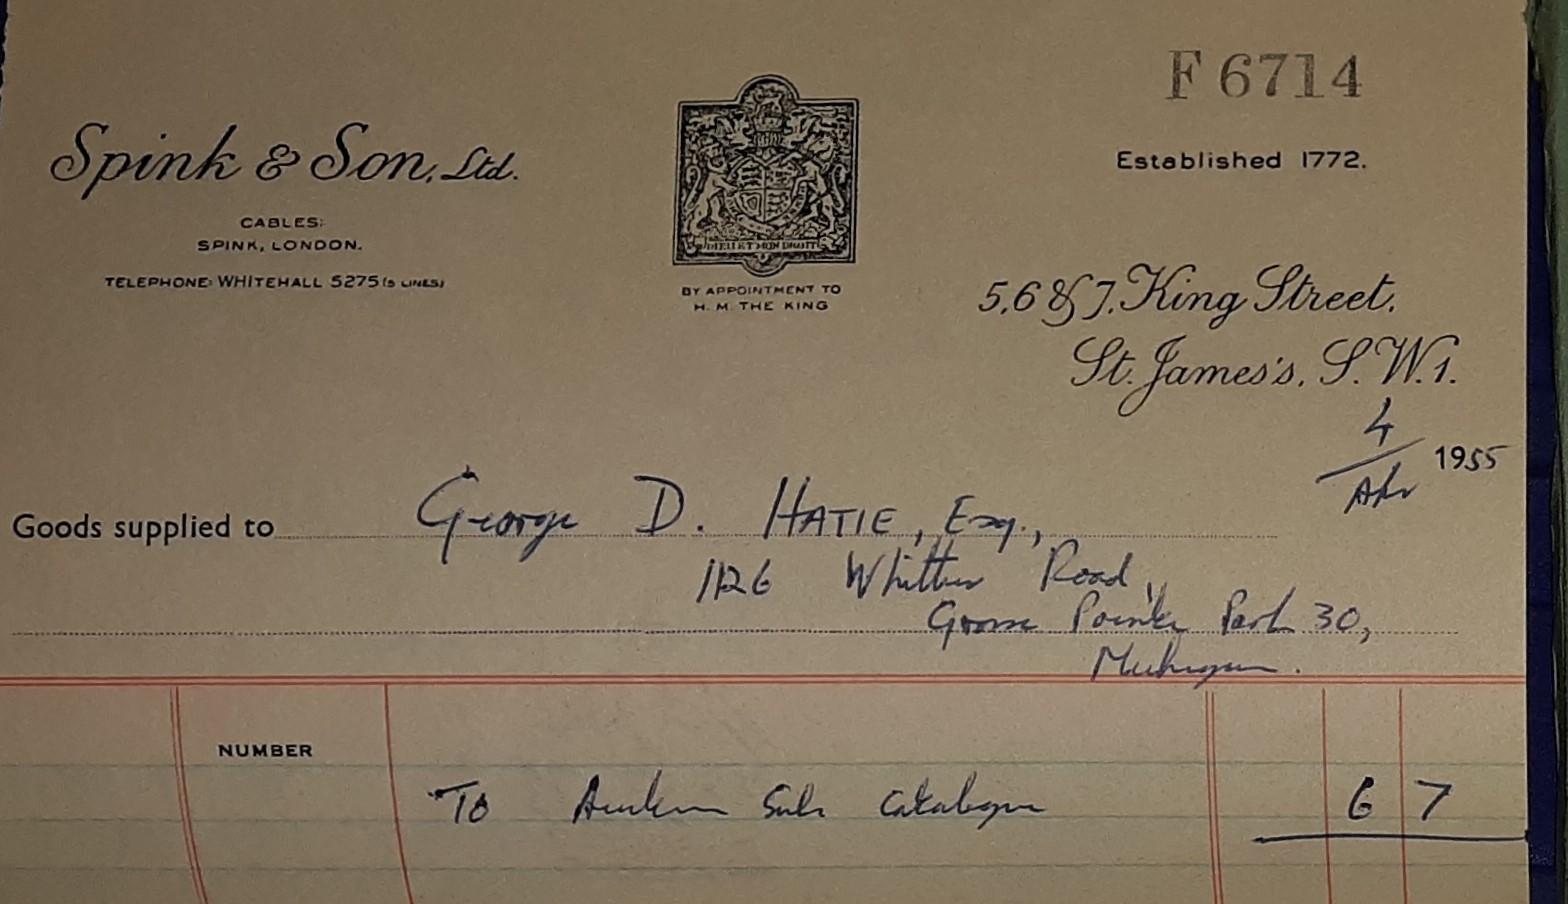 F 6714
Spink & Son, Ltd.
Established 1772.
CABLES:
SPINK, LONDON.
TELEPHONE: WHITEHALL 5275 (5 LINES)
DIEU ET MON DROIT
BY APPOINTMENT TO
H. M. THE KING
5, 6 & 7, King Street,
St. James's, S.W.1.
4
Apr 1955
Goods supplied to George D. HATIE, Esq.,
1126 Whittier Road,
Grosse Pointe Park 30,
Michigan.
NUMBER
To Auction Sale Catalogue 6 7